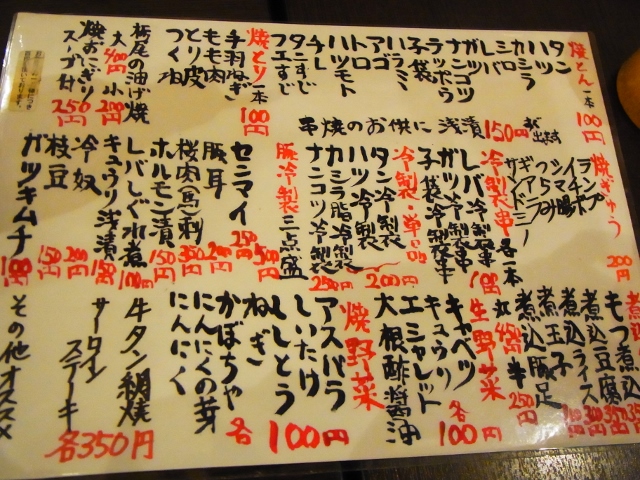 焼とん 一本 100円
タン
ハツ
カシラ
レバ
ナンコツ
ラッポウ
子袋
ハラミ
アゴ
トロ
ハツモト
チレ
タンすじ
フエすじ
焼とり 一本 100円
手羽ねぎ
もも肉
とり皮
つくね
栃尾の油げ焼
大400円 小200円
焼おにぎり
スープ付 250円
串焼のお供に 浅漬 150円
焼ぎゅう 200円
シマ腸
ギアラ
サンドミノ
冷製串 各一本
レバ冷製串
ガツ冷製串
子袋冷製串
冷製・単品 200円
タン冷製
ハツ冷製
カシラ脂冷製
ナンコツ冷製 250円
豚冷製三点盛 500円
センマイ 250円
豚耳 200円
桜肉(馬)刺 350円
ホルモン漬 150円
レバしぐれ煮 100円
キュウリ浅漬 150円
冷奴
枝豆
ガツキムチ
もつ煮
煮込豆腐
煮込ライス
煮玉子
煮込豚足
250円
生野菜
キャベツ
キュウリ
エシャレット
大根酢醤油
各100円
焼野菜
アスパラ
しいたけ
ししとう
ねぎ
かぼちゃ
にんにくの芽
にんにく
各100円
牛タン網焼
サーロイン
ステーキ
各350円
その他オススメ